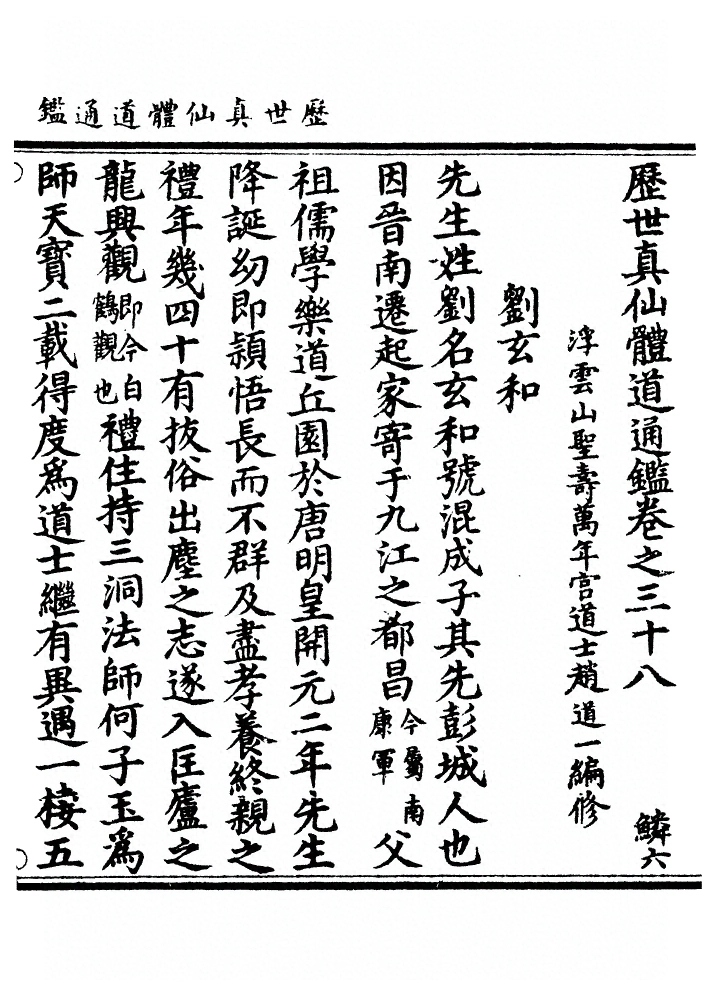 歷世真仙體道通鑑
歷世真仙體道通鑑卷之三十八 鱗六
浮雲山聖壽萬年宮道士趙道一編修
劉玄和
先生姓劉名玄和號混成子其先彭城人也
因晉南遷起家寄于九江之都昌今屬南康軍父
祖儒學樂道丘園於唐明皇開元二年先生
降誕幼即頴悟長而不群及盡孝養終親之
禮年幾四十有拔俗出塵之志遂入匡廬之
龍興觀即今白鶴觀也禮住持三洞法師何子玉為
師天寶二載得度為道士繼有異遇一棲五